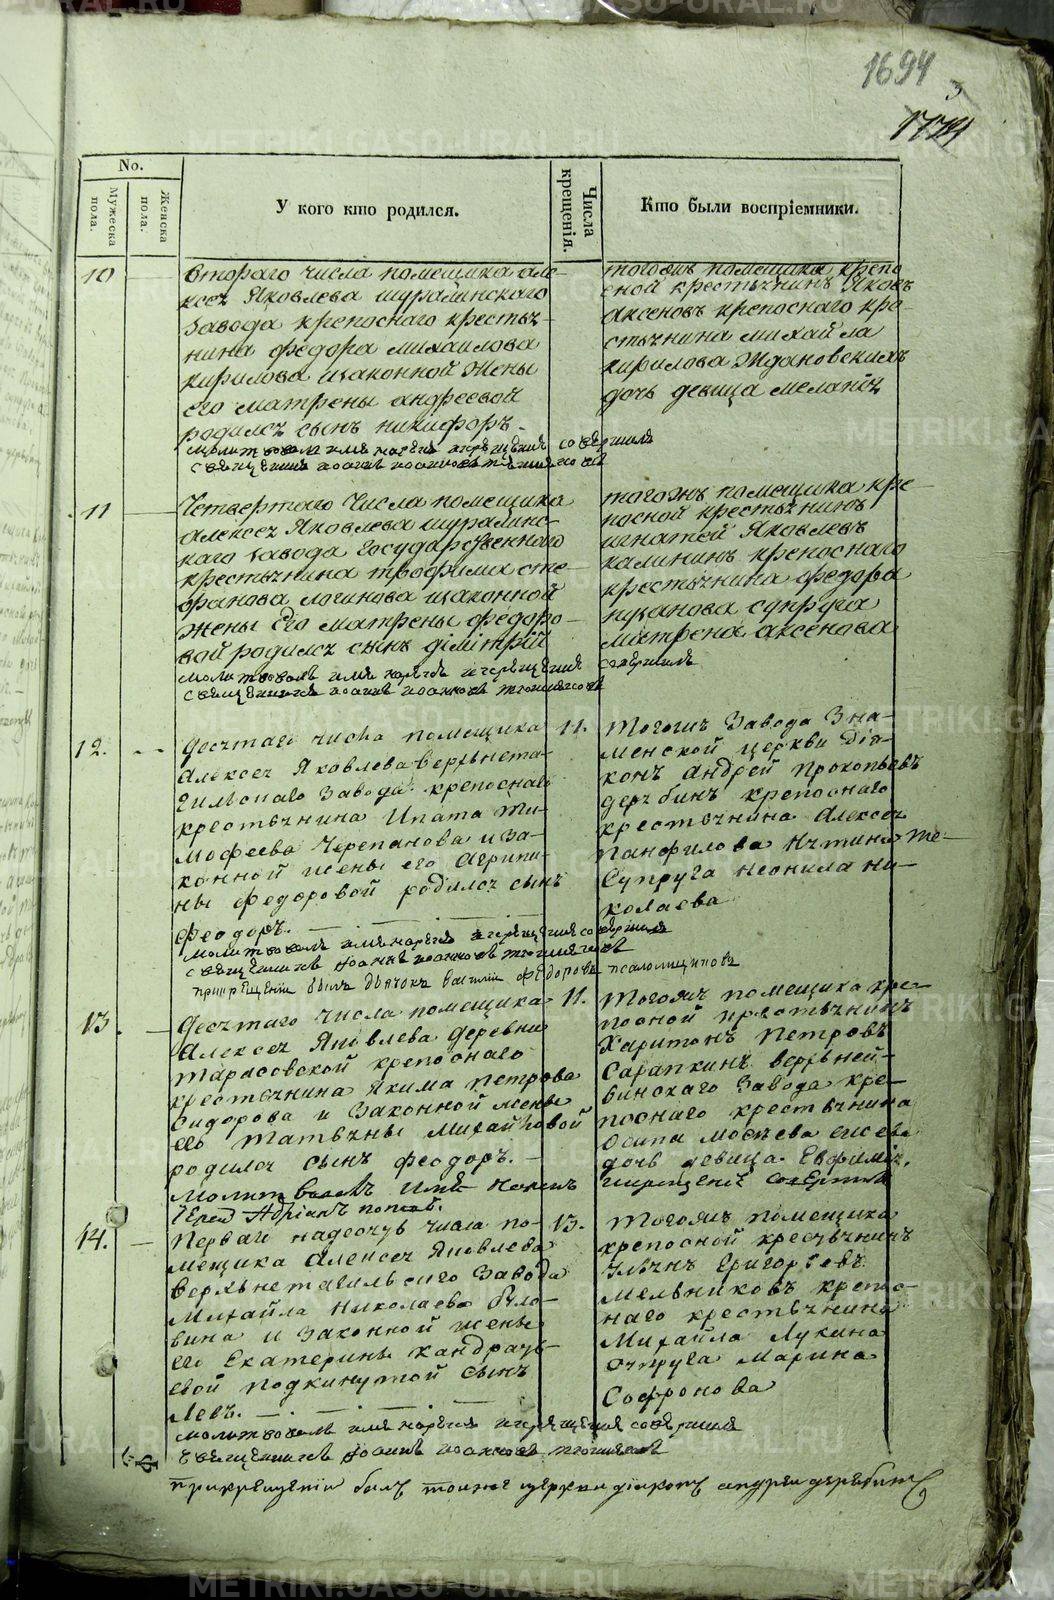 1694
3
1774
No.
Мужеска пола.
Женска пола.
У кого кто родился.
Числа крещенія.
Кто были воспріемники.
10
втораго числа помещика але-
ксея Яковлева шуралинскаго
завода крепоснаго крестья-
нина федора михаилова
кирилова изаконной жены
его матрены андреевой
родился сынъ никифоръ.
молитвовалъ имя нарече икрещение совершилъ
священникъ иоаннъ иоанновъ
тогожъ помещика крепо
сной крестьянинъ Яковъ
аксеновъ крепоснаго кре-
стьянина михайла
кирилова Ждановскихъ
дочь девица меланія
11
Четвертаго Числа помещика
алексея Яковлева шуралинс-
каго завода Государственнаго
крестьянина трофима сте-
фанова логинова изаконной
жены Его матрены федоро-
вой родился сынъ димітрій
молитвовалъ имя нарече икрещение совершилъ
священникъ иоаннъ иоанновъ
тогожъ помещика кре-
посной крестьянинъ
игнатей Яковлевъ
калининъ крепоснаго
крестьянина федора
супруга
матрена аксенова
12.
десятаго числа помещика
Алексея Яковлева верхнета-
гильскаго завода крепоснаго
крестьянина Ипата Ти-
мофеева Черепанова и за-
конной жены его Агрипи-
ны федоровой родился сынъ
феодоръ.
молитвовалъ имя нарече икрещение совершилъ
священникъ Иоаннъ иоанновъ
прикрещении былъ дьячокъ василий федоровъ
11.
Тогожъ Завода Зна-
менской церкви дія-
конъ андрей прокопьевъ
дерябинъ крепоснаго
крестьянина Алексея
Панфилова Же-
Супруга неонила ни-
колаева
13.
Десятаго числа помещика
Алексея Яковлева деревни
тарасовской крепоснаго
крестьянина Якима петрова
Сидорова и Законной жены
его татьяны михайловой
родился сынъ феодоръ.
молитвовалъ имя нарекъ
Іерей Адріанъ поповъ.
11.
Тогожъ помещика кре-
посной крестьянинъ
Харитонъ Петровъ
Сарапкинъ верхней-
винскаго Завода кре-
поснаго крестьянина
Осипа моѵсеева елсева
дочь девица Евфимія.
икрещеніе совершилъ
14.
Перваго надесять числа по-
мещика Алексея Яковлева
верхнетагильскаго Завода
Михайла Николаева
и Законной жены
его Екатерины кандрать-
евой подкинутой сынъ
Левъ.
молитвовалъ имя нарече икрещение совершилъ
священникъ Иоаннъ иоанновъ
прикрещении былъ тояже церкви діяконъ андрей дерябинъ
13.
Тогожъ помещика
крепосной крестьянинъ
Ульянъ Григорьевъ
мельниковъ крепос-
наго крестьянина
Михайла Лукина
супруга Марина
Софронова